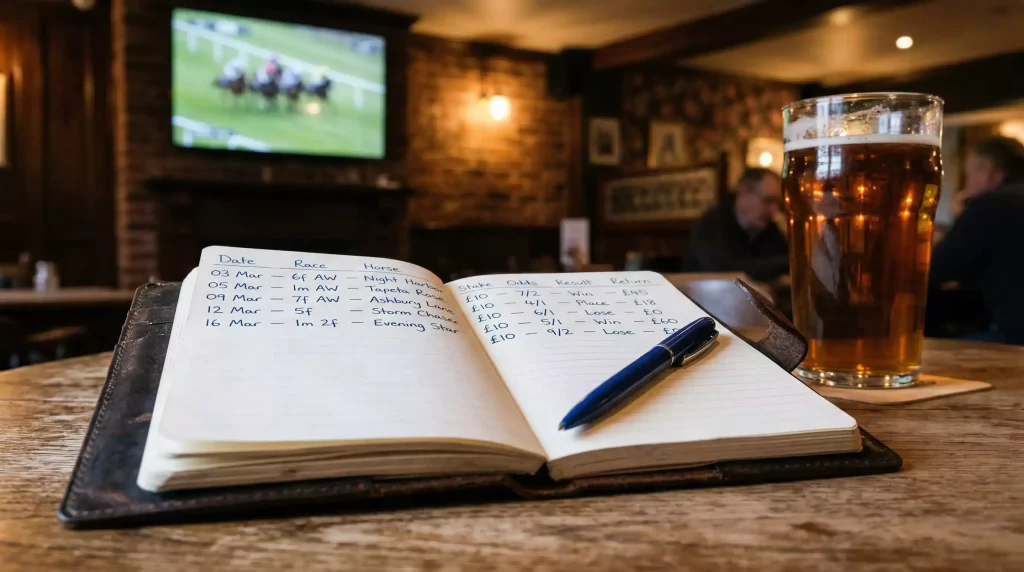 Date Race Horse
03 Mar — 6f AW — Night Harbor
05 Mar — 1m AW — Tapeta Rose
09 Mar — 7f AW — Ashbury Lane
12 Mar — 5f — Storm Chaser
16 Mar — 1m 2f — Evening Star
Stake Odds Result Return
£10 — 7/2 — Win — £45
£10 — 4/1 — Place — £18
£10 — 6/1 — Lose — £0
£10 — 5/1 — Win — £60
£10 — 9/2 — Lose —